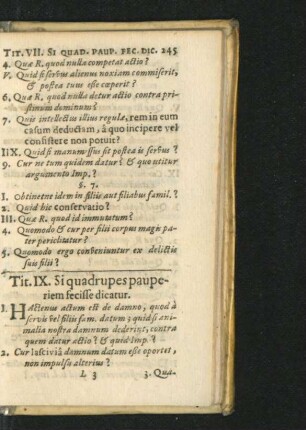 TIT. VII. SI QUAD. PAUP. FEC. DIC. 245
4. Quæ R. quod nulla competat actio?
V. Quid si servus alienus noxiam commiserit,
& postea tuus esse cœperit?
6. Quæ R. quod nulla detur actio contra pri-
stinum dominum?
7. Quis intellectus illius regulæ, rem in eum
casum deductam, à quo incipere vel
consistere non potuit?
IIX. Quid si manumissus sit postea is servus?
9. Cur ne tum quidem datur? & quo utitur
argumento Imp.?
§. 7.
I. Obtinetne idem in filiis aut filiabus famil.?
2. Quid hîc conservatio?
III. Quæ R. quod id immutatum?
4. Quomodo & cur per filii corpus magis pa-
ter periclitatur?
5. Quomodo ergo conveniuntur ex delictis
suis filii?
Tit. IX. Si quadrupes paupe-
riem fecisse dicatur.
I. HActenus actum est de damno, quod à
servis vel filiis fam. datum: quid si ani-
malia nostra damnum dederint, contra
quem datur actio? & quid Imp.?
2. Cur lasciviâ damnum datum esse oportet,
non impulsu alterius?
L 3 3. Qua-